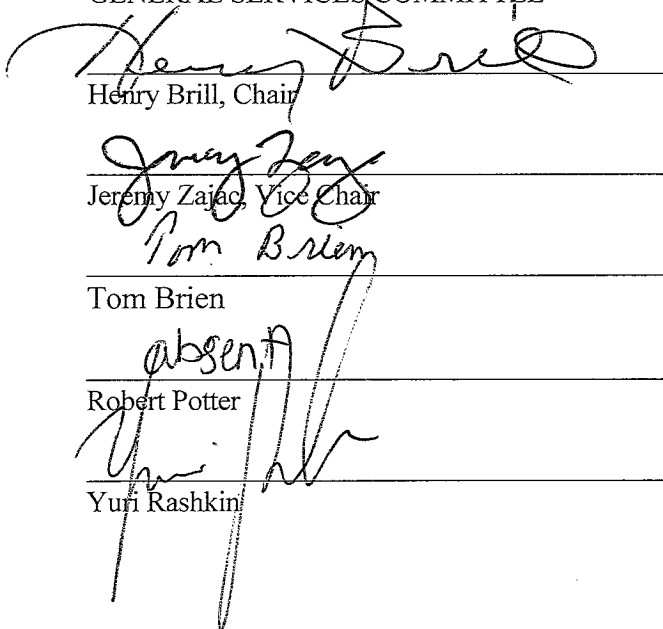 GENERAL SERVICES COMMITTEE
Henry Brill
Henry Brill, Chair
Jeremy Zajac, Vice Chair
Tom Brien
Tom Brien
absent
Robert Potter
Yuri Rashkin